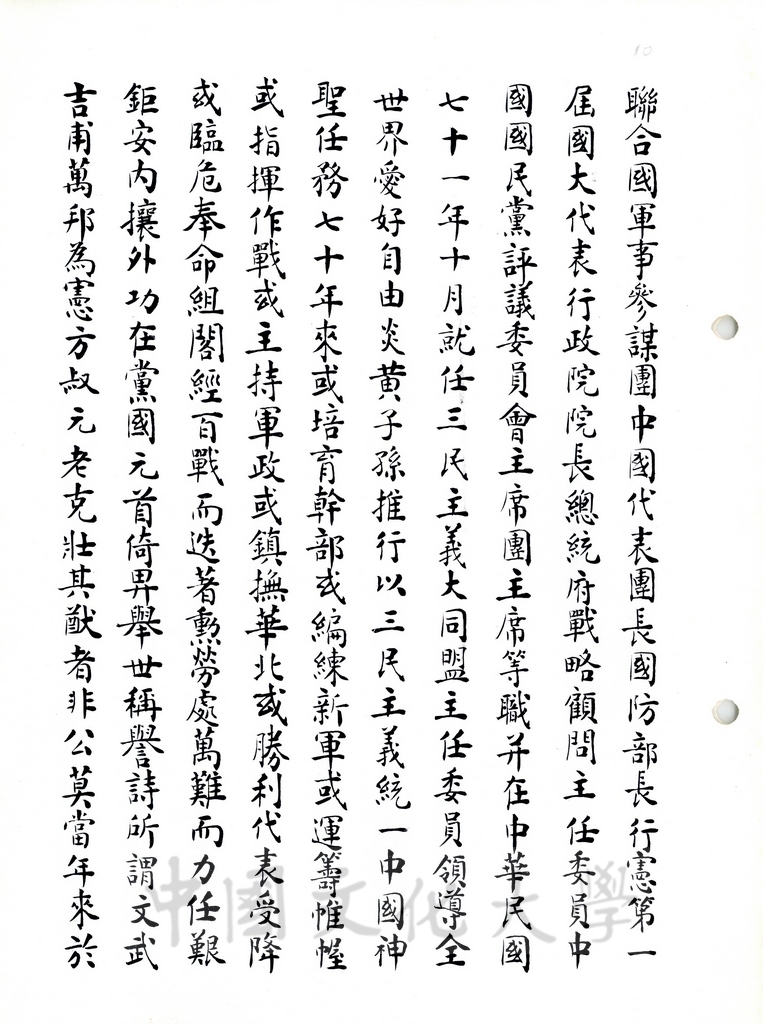 聯合國軍事參謀團中國代表團長國防部長行憲第一
屆國大代表行政院院長總統府戰略顧問主任委員中
國國民黨評議委員會主席團主席等職并在中華民國
七十一年十月就任三民主義大同盟主任委員領導全
世界愛好自由炎黃子孫推行以三民主義統一中國神
聖任務七十年來或培育幹部或編練新軍或運籌帷幄
或指揮作戰或主持軍政或鎮撫華北或勝利代表受降
或臨危奉命組閣經百戰而迭著勳勞處萬難而力任艱
鉅安內攘外功在黨國元首倚畀舉世稱譽詩所謂文武
吉甫萬邦為憲方叔元老克壯其猷者非公莫當年來於
中國文化大學
10